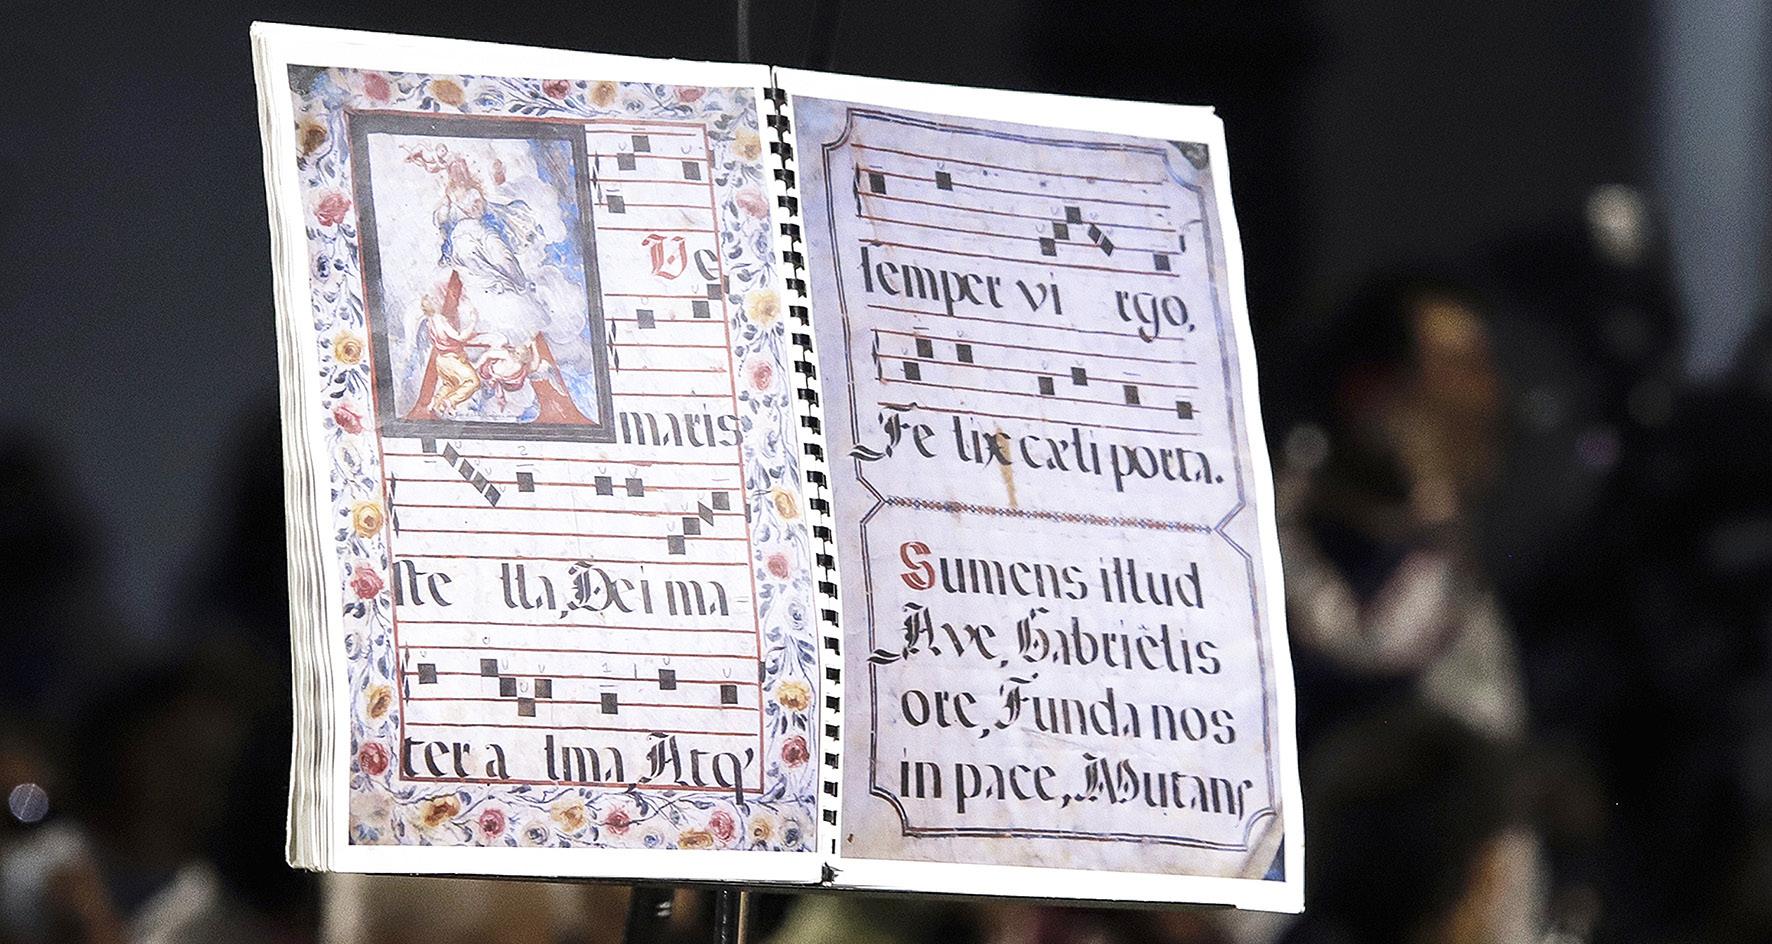 Ve
maris
ste lla, Dei ma-
ter a lma, Atq'
semper vi rgo,
Fe lix cæli porta.
Sumens illud
Ave, Gabriêlis
ore, Funda nos
in pace, Mutans